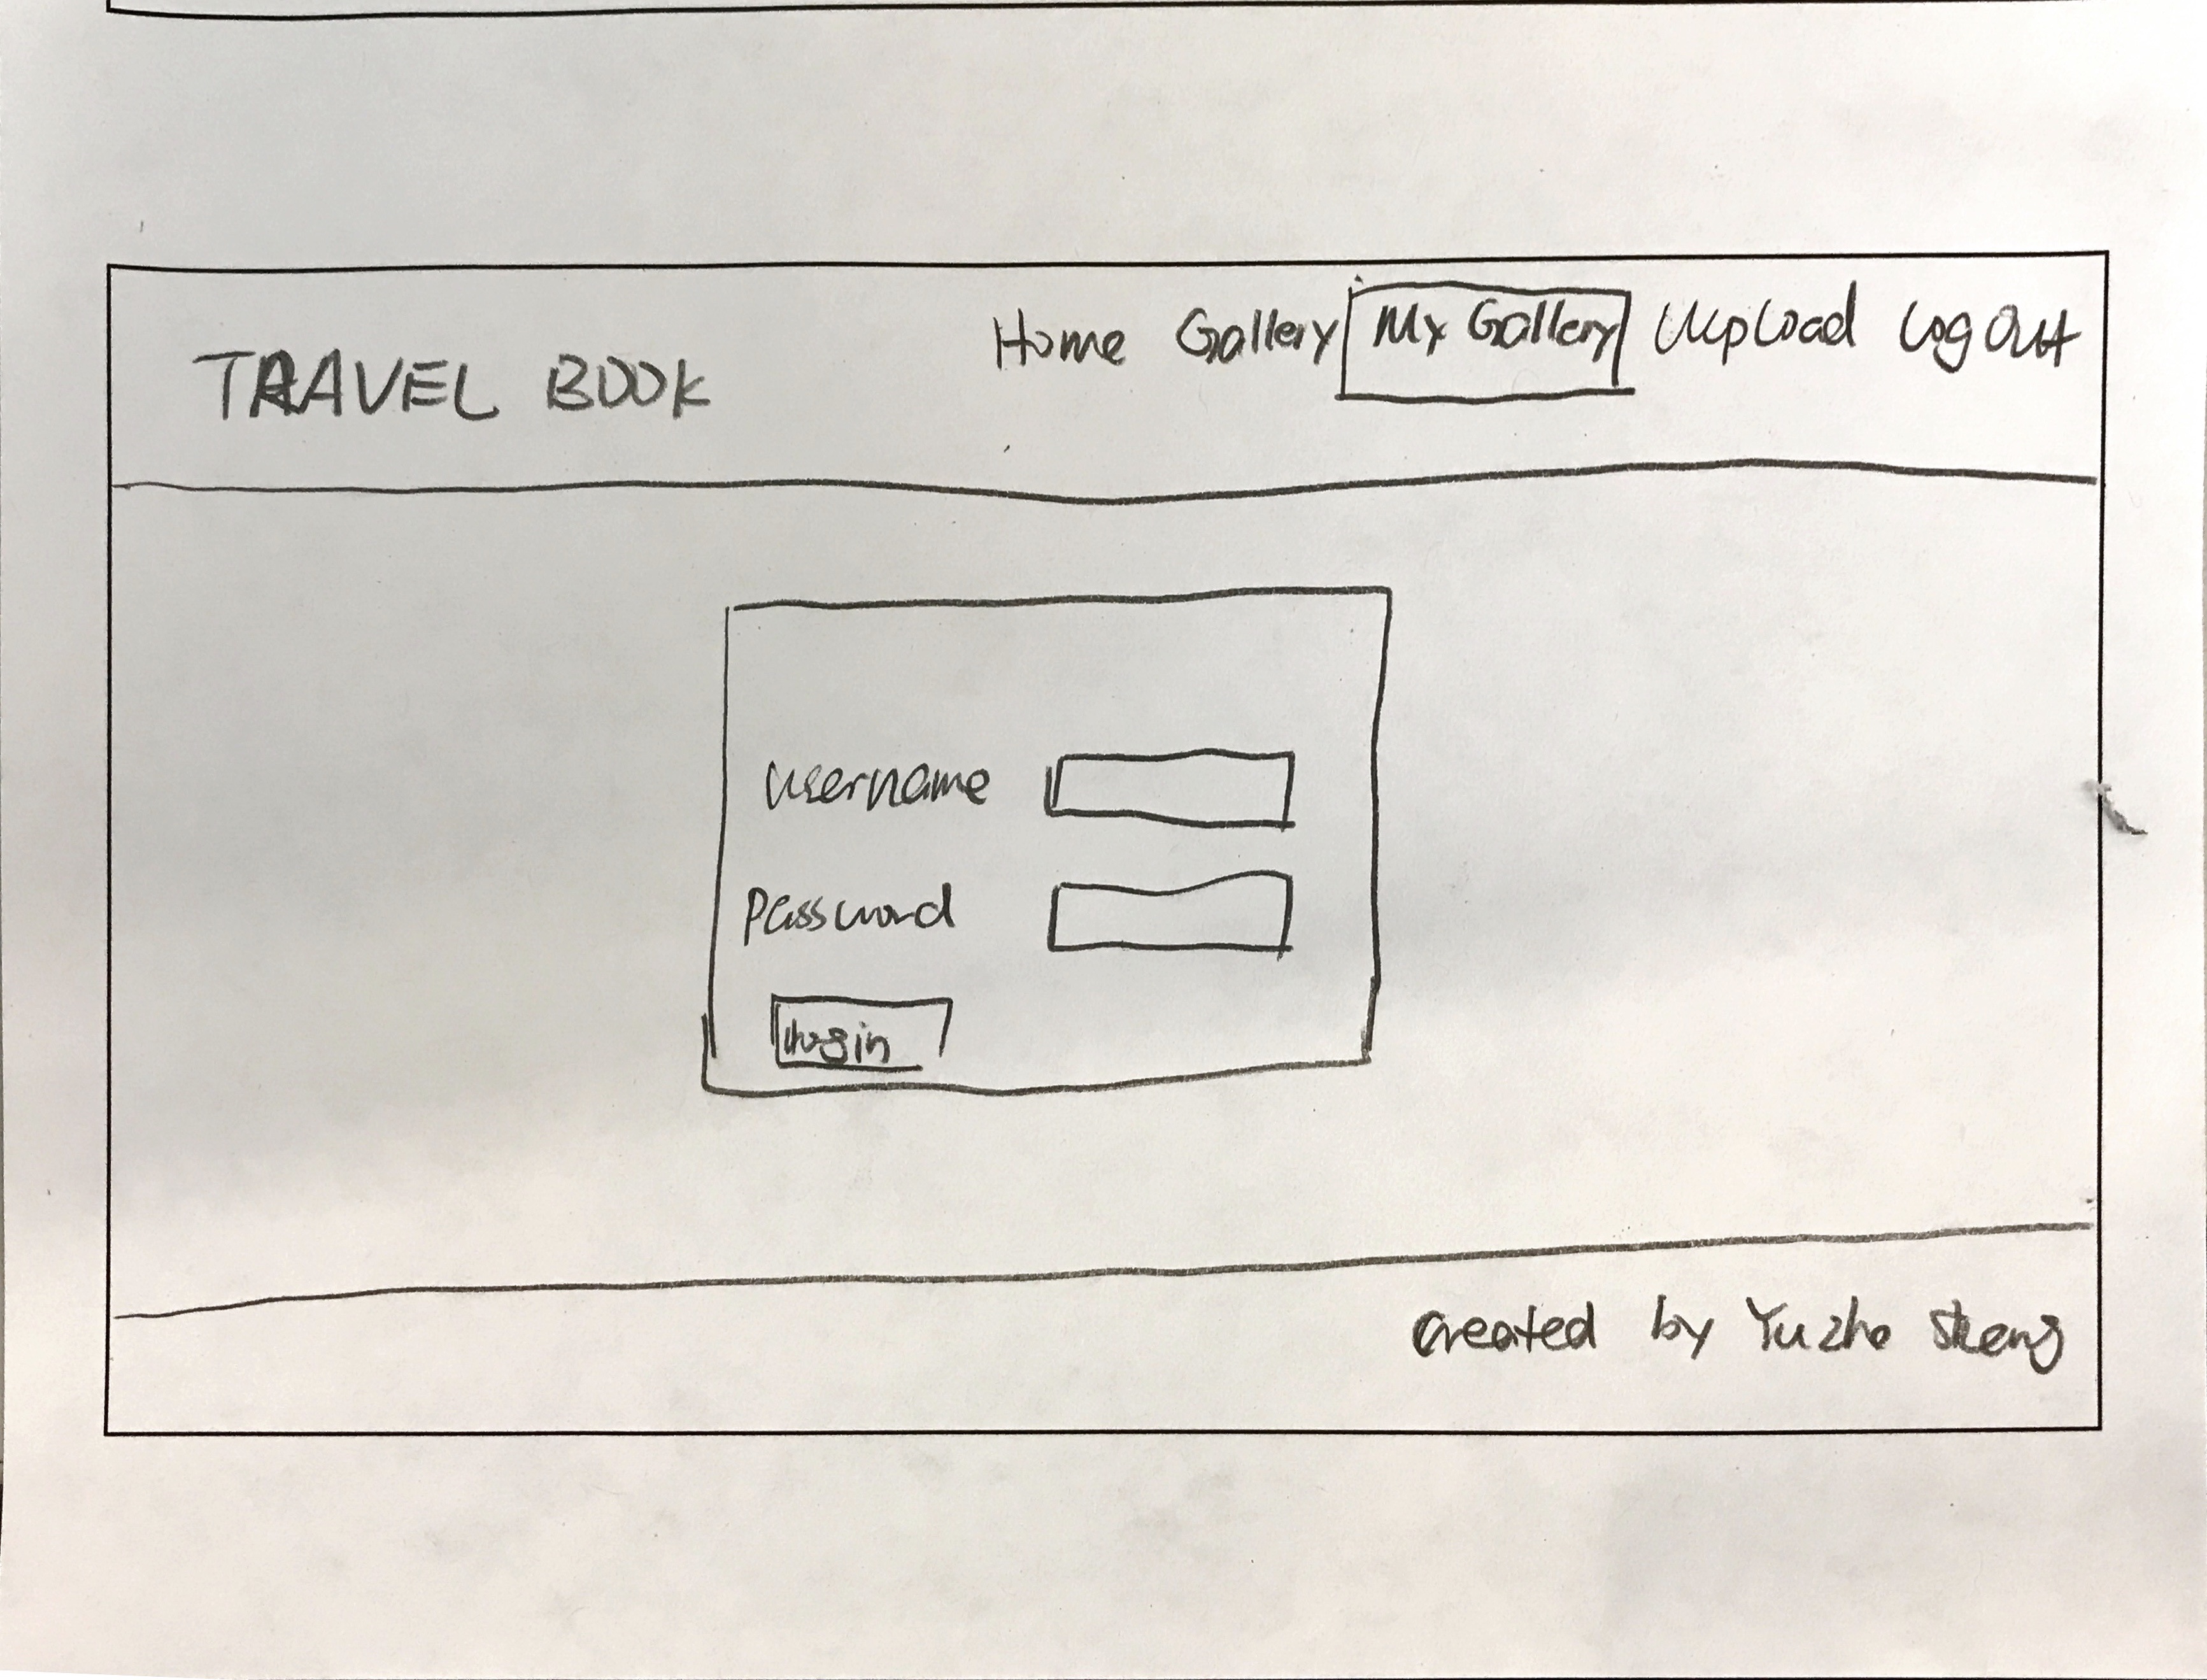 TRAVEL BOOK
Home Gallery My Gallery Upload Log Out
username
password
login
created by Yuzhe Sheng